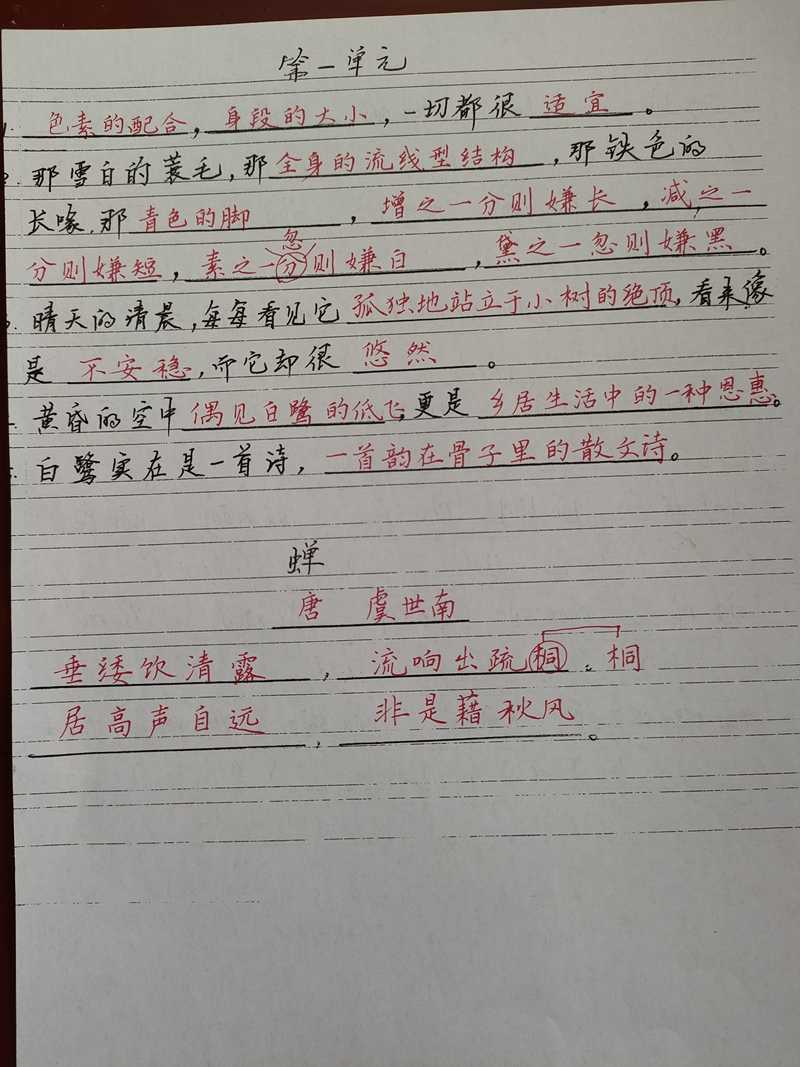 第一单元
1. 色素的配合，身段的大小，一切都很 适宜 。
2. 那雪白的蓑毛，那全身的流线型结构，那铁色的
长喙，那 青色的脚 ，增之一分则嫌长，减之一
忽
分则嫌短，素之一分则嫌白 ，黛之一忽则嫌黑。
3. 晴天的清晨，每每看见它 孤独地站立于小树的绝顶，看来像
是 不安稳，而它却很 悠然 。
黄昏的空中偶见白鹭的低飞，更是 乡居生活中的一种恩惠。
白鹭实在是一首诗，一首韵在骨子里的散文诗。
蝉
唐 虞世南
垂緌饮清露 ，流响出疏桐 。桐
居高声自远 ，非是藉秋风 。